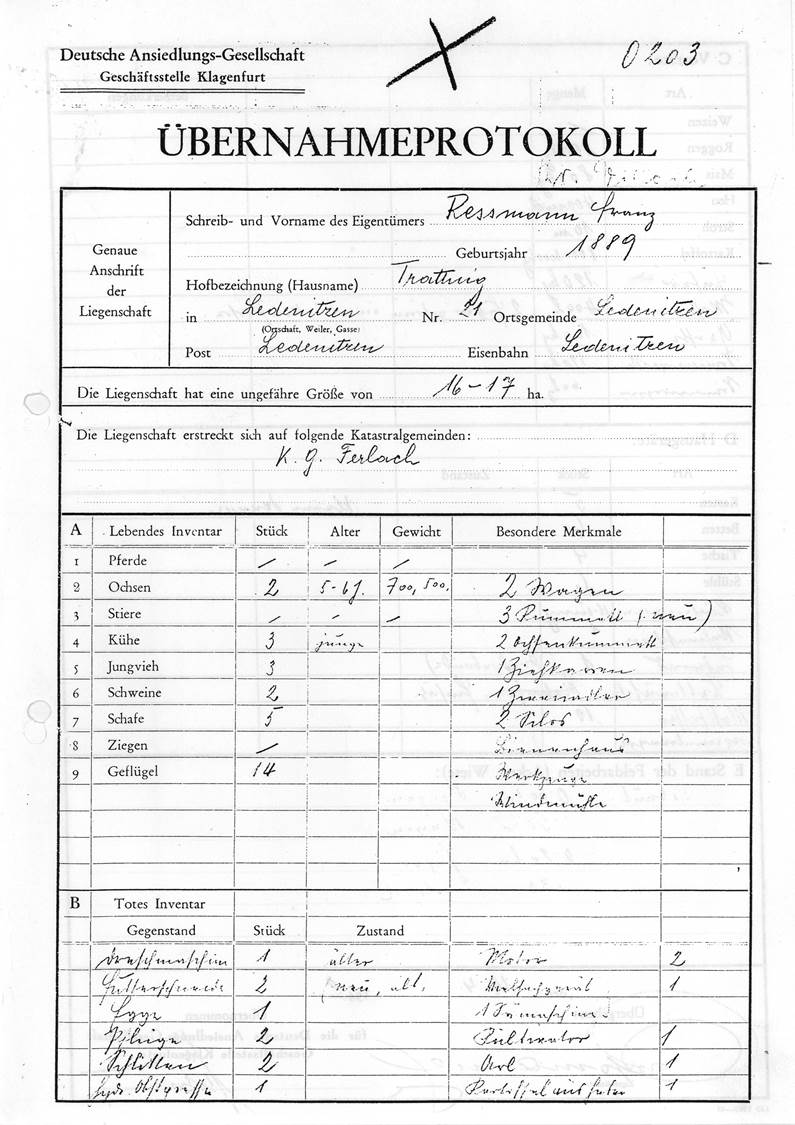 Deutsche Ansiedlungs-Gesellschaft
Geschäftsstelle Klagenfurt
0203
ÜBERNAHMEPROTOKOLL
Genaue Anschrift der Liegenschaft
Schreib- und Vorname des Eigentümers Ressmann Franz
Geburtsjahr 1889
Hofbezeichnung (Hausname) Trattnig
in Ledenitzen Nr. 21 Ortsgemeinde Ledenitzen
(Ortschaft, Weiler, Gasse)
Post Ledenitzen Eisenbahn Ledenitzen
Die Liegenschaft hat eine ungefähre Größe von 16-17 ha.
Die Liegenschaft erstreckt sich auf folgende Katastralgemeinden:
K. G. Ferlach
A Lebendes Inventar Stück Alter Gewicht Besondere Merkmale
1 Pferde / / /
2 Ochsen 2 5-6 j. 700, 500. 2 Wagen
3 Stiere / / / 3 Kummett (neu)
4 Kühe 3 junge 2 Ochsenkummett
5 Jungvieh 3 1 Ziehkarren
6 Schweine 2 1
7 Schafe 5 2 Silos
8 Ziegen / Bienenhaus
9 Geflügel 14 Werkzeuge
Windmühle
B Totes Inventar
Gegenstand Stück Zustand
Dreschmaschine 1 älter Motor 2
Futterschneide 2 (neu, alt. 1
Egge 1 1 Sämaschine
Pflüge 2 Kultivator 1
Schlitten 2 Arl 1
hydr. Obstpresse 1 1